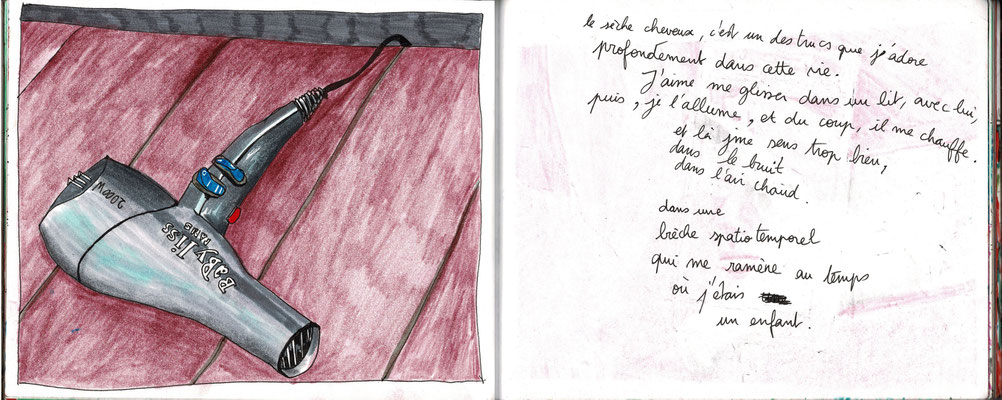 2000W
BaByliss
PARIS
le sèche cheveux, c'est un des trucs que j'adore
profondément dans cette vie.
J'aime me glisser dans un lit, avec lui,
puis, je l'allume, et du coup, il me chauffe.
et là j'me sens trop bien,
dans le bruit
dans l'air chaud.
dans une
brèche spatio temporel
qui me ramène au temps
où j'étais
un enfant.